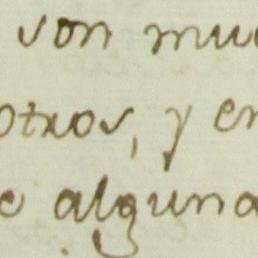 son mu
otros, y en
e alguna